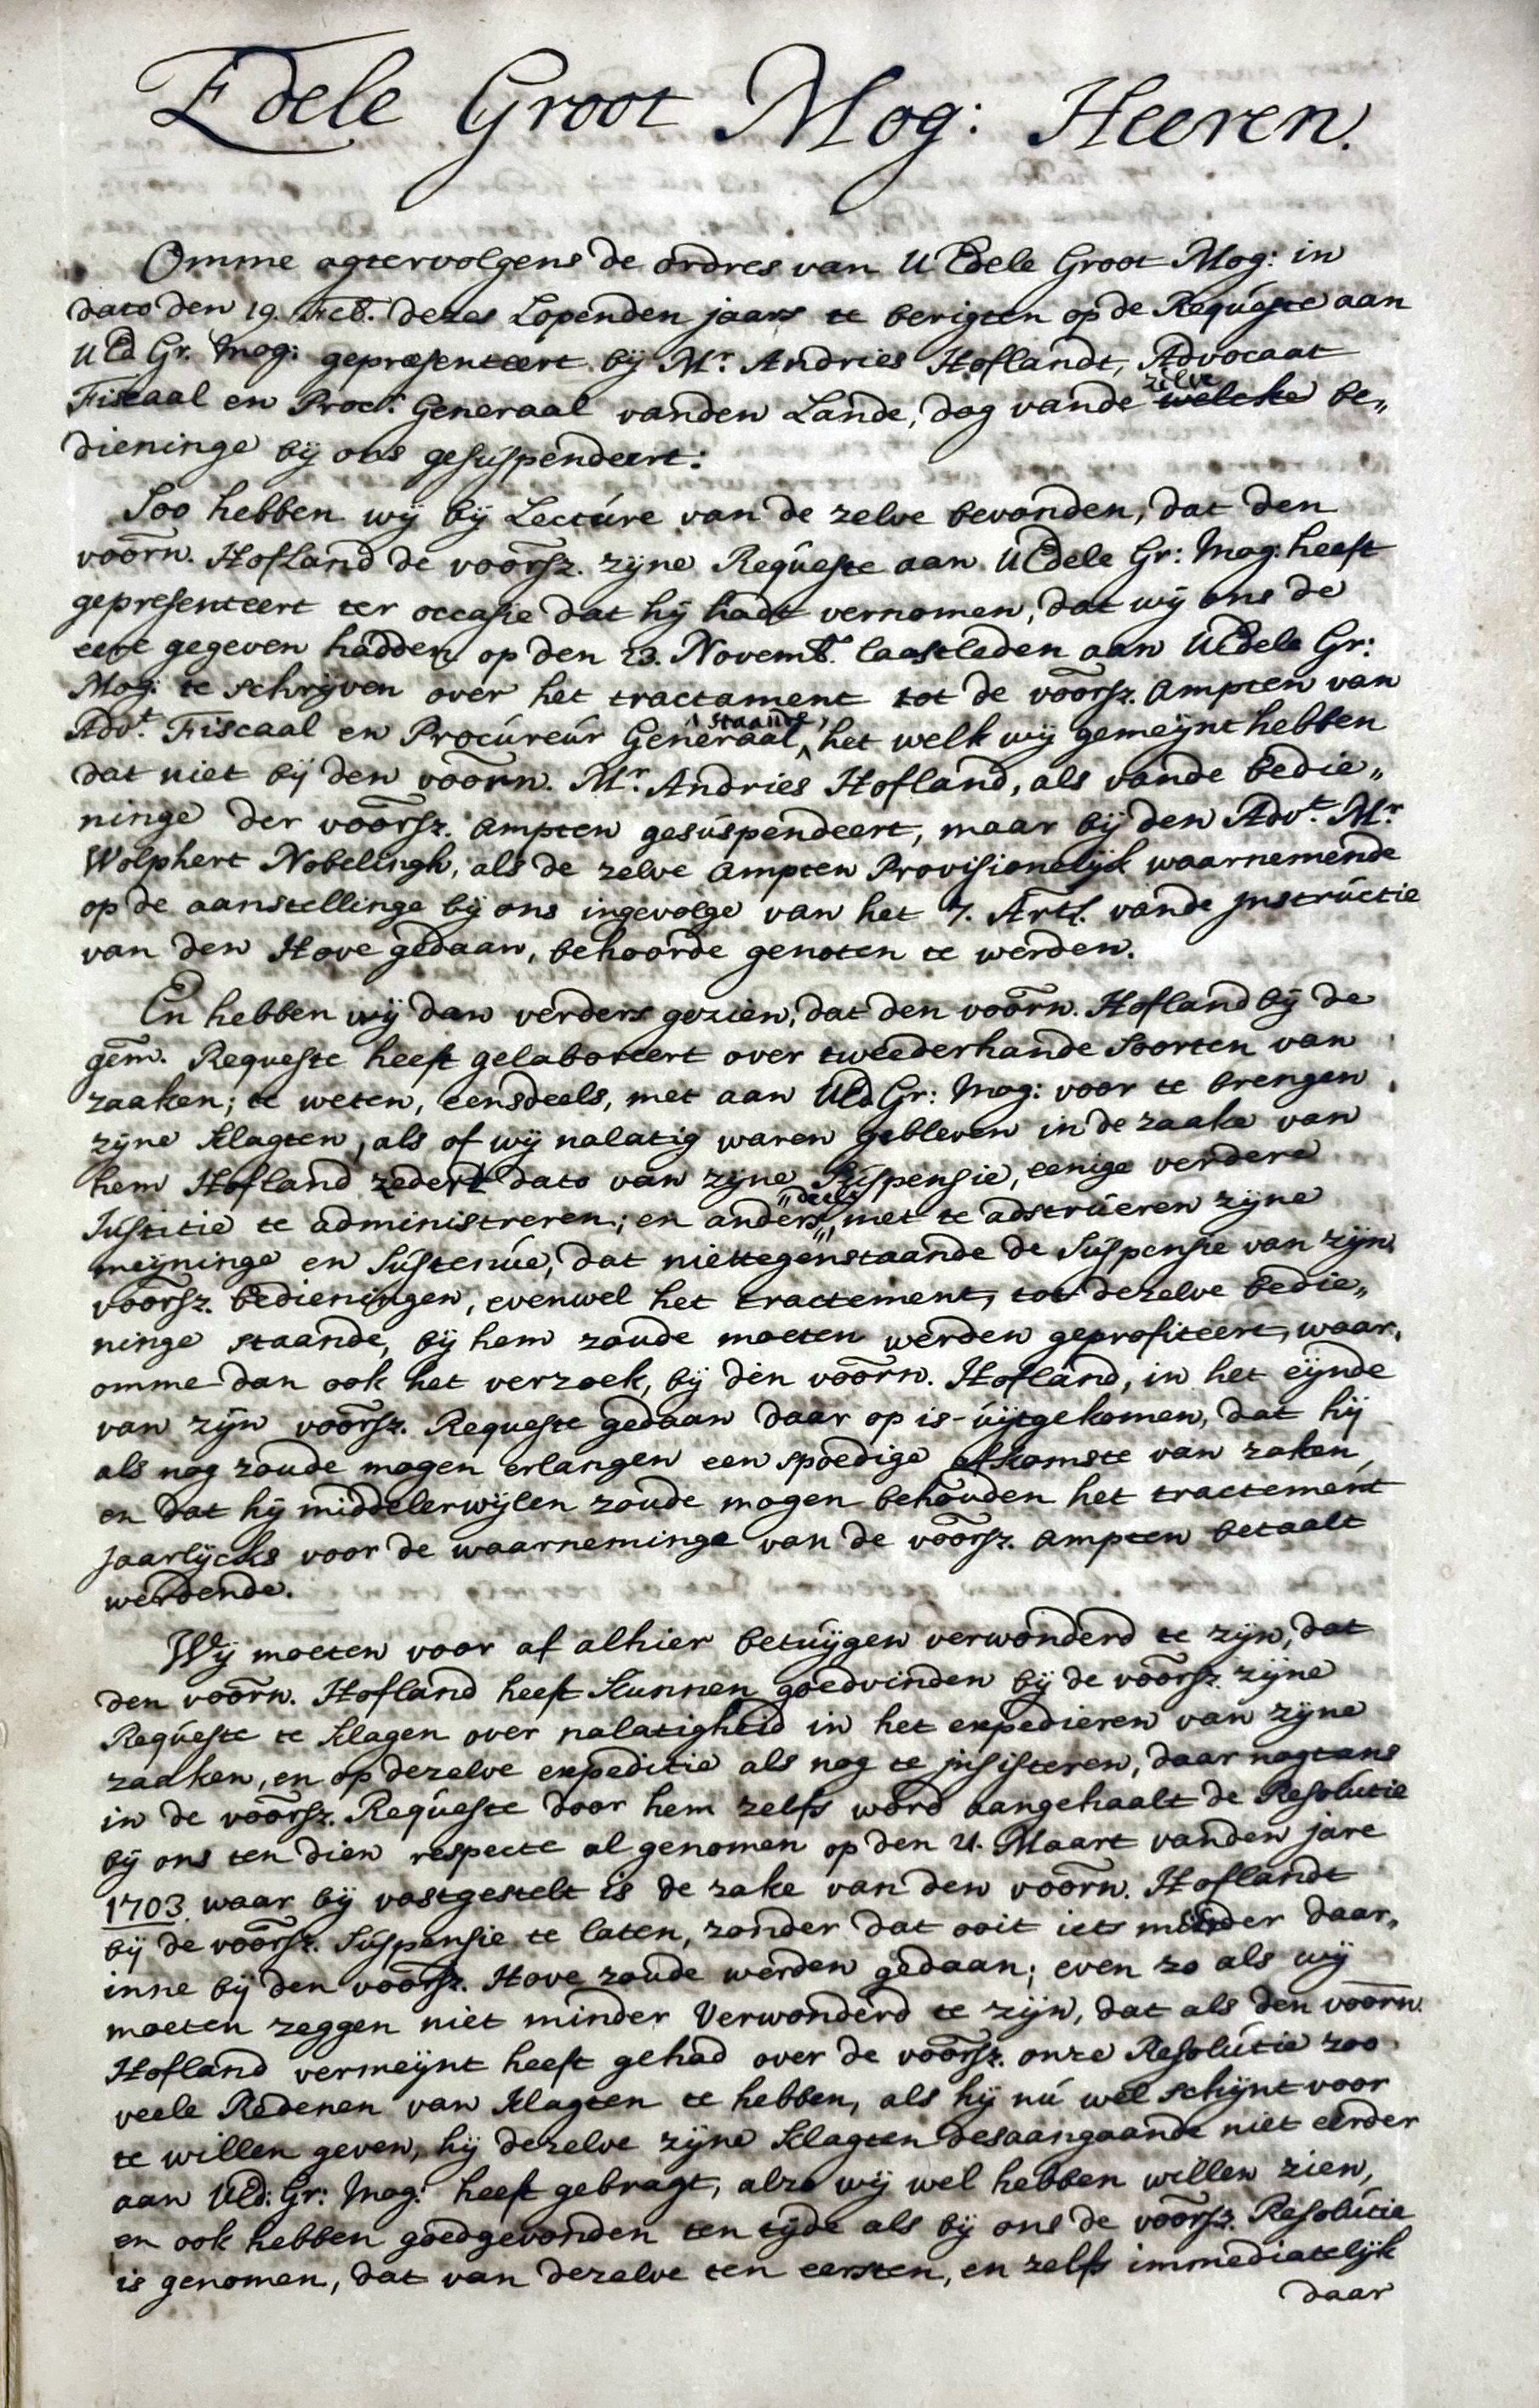 Edele Groot Mog: Heeren.
Omme agtervolgens de ordres van UEdele Groot Mog: in
dato den 19. Feb. dezes Lopenden jaars te berigten op de Requeste aan
UEd Gr. Mog: gepræsenteert bij Mr. Andries Hoflandt, Advocaat
Fiscaal en Procr. Generaal vanden Lande, dog vande zelve welcke be„
dieninge bij ons gesuspendeert:
Soo hebben wij bij Lecture van de zelve bevonden, dat den
voorn. Hofland de voorsz. zijne Requeste aan UEdele Gr: Mog: heeft
gepresenteert ter occasie dat hij hadt vernomen, dat wij ons de
eere gegeven hadden op den 23. Novemb. laastleden aan UEdele Gr:
Mog: te schrijven over het tractament tot de voorsz. Ampten van
Advt. Fiscaal en Procureur Generaal staande, het welk wij gemeijnt hebben
dat niet bij den voorn. Mr. Andries Hofland, als vande bedie„
ninge der voorsz. Ampten gesuspendeert, maar bij den Advt. Mr
Wolphert Nobelingh, als de zelve Ampten Provisionelijk waarnemende
op de aanstellinge bij ons ingevolge van het 7. Artl. vande Instructie
van den Hove gedaan, behoorde genoten te werden.
En hebben wij dan verders gezien, dat den voorn. Hofland bij de
gem. Requeste heeft gelaboreert over tweederhande Soorten van
zaaken; te weten, eensdeels, met aan UEd Gr: Mog: voor te brengen
zijne Klagten, als of wij nalatig waren gebleven in de zaake van
hem Hofland zedert dato van zijne Suspensie, eenige verdere
Justitie te administreren; en anders„deels„ met te adstrueren zijne
meijninge en Sustenue, dat niettegenstaande de Suspensie van zijn
voorsz. bedieningen, evenwel het tractement, tot dezelve bedie„
ninge staande, bij hem zoude moeten werden geprofiteert, waar„
omme dan ook het verzoek, bij den voorn. Hofland, in het eijnde
van zijn voorsz. Requeste gedaan daar op is uijtgekomen, dat hij
als nog zoude mogen erlangen een spoedige afkomste van zaken,
en dat hij middelerwijlen zoude mogen behouden het tractement
jaarlijcks voor de waarneminge van de voorsz. Ampten betaalt
werdende.
Wij moeten voor af alhier betuijgen verwonderd te zijn, dat
den voorn. Hofland heeft Kunnen goedvinden bij de voorsz. zijne
Requeste te Klagen over nalatigheid in het expedieren van zijne
zaaken, en op dezelve expeditie als nog te insisteren, daar nogtans
in de voorsz. Requeste door hem zelfs word aangehaalt de Resolutie
bij ons ten dien respecte al genomen op den 21. Maart vanden jare
1703. waar bij vastgestelt is de zake van den voorn. Hoflandt
bij de voorsz. Suspensie te laten, zonder dat ooit iets minder daar„
inne bij den voorsz. Hove zoude werden gedaan; even zo als wij
moeten zeggen niet minder Verwonderd te zijn, dat als den voorn.
Hofland vermeijnt heeft gehad over de voorsz. onze Resolutie zoo
veele Redenen van Klagten te hebben, als hij nu wel schijnt voor
te willen geven, hij dezelve zijne Klagten desaangaande niet eerder
aan UEd: Gr: Mog: heeft gebragt, alzo wij wel hebben willen zien,
en ook hebben goedgevonden ten tijde als bij ons de voorsz. Resolutie
is genomen, dat van dezelve ten eersten, en zelfs immediatelijk
daar